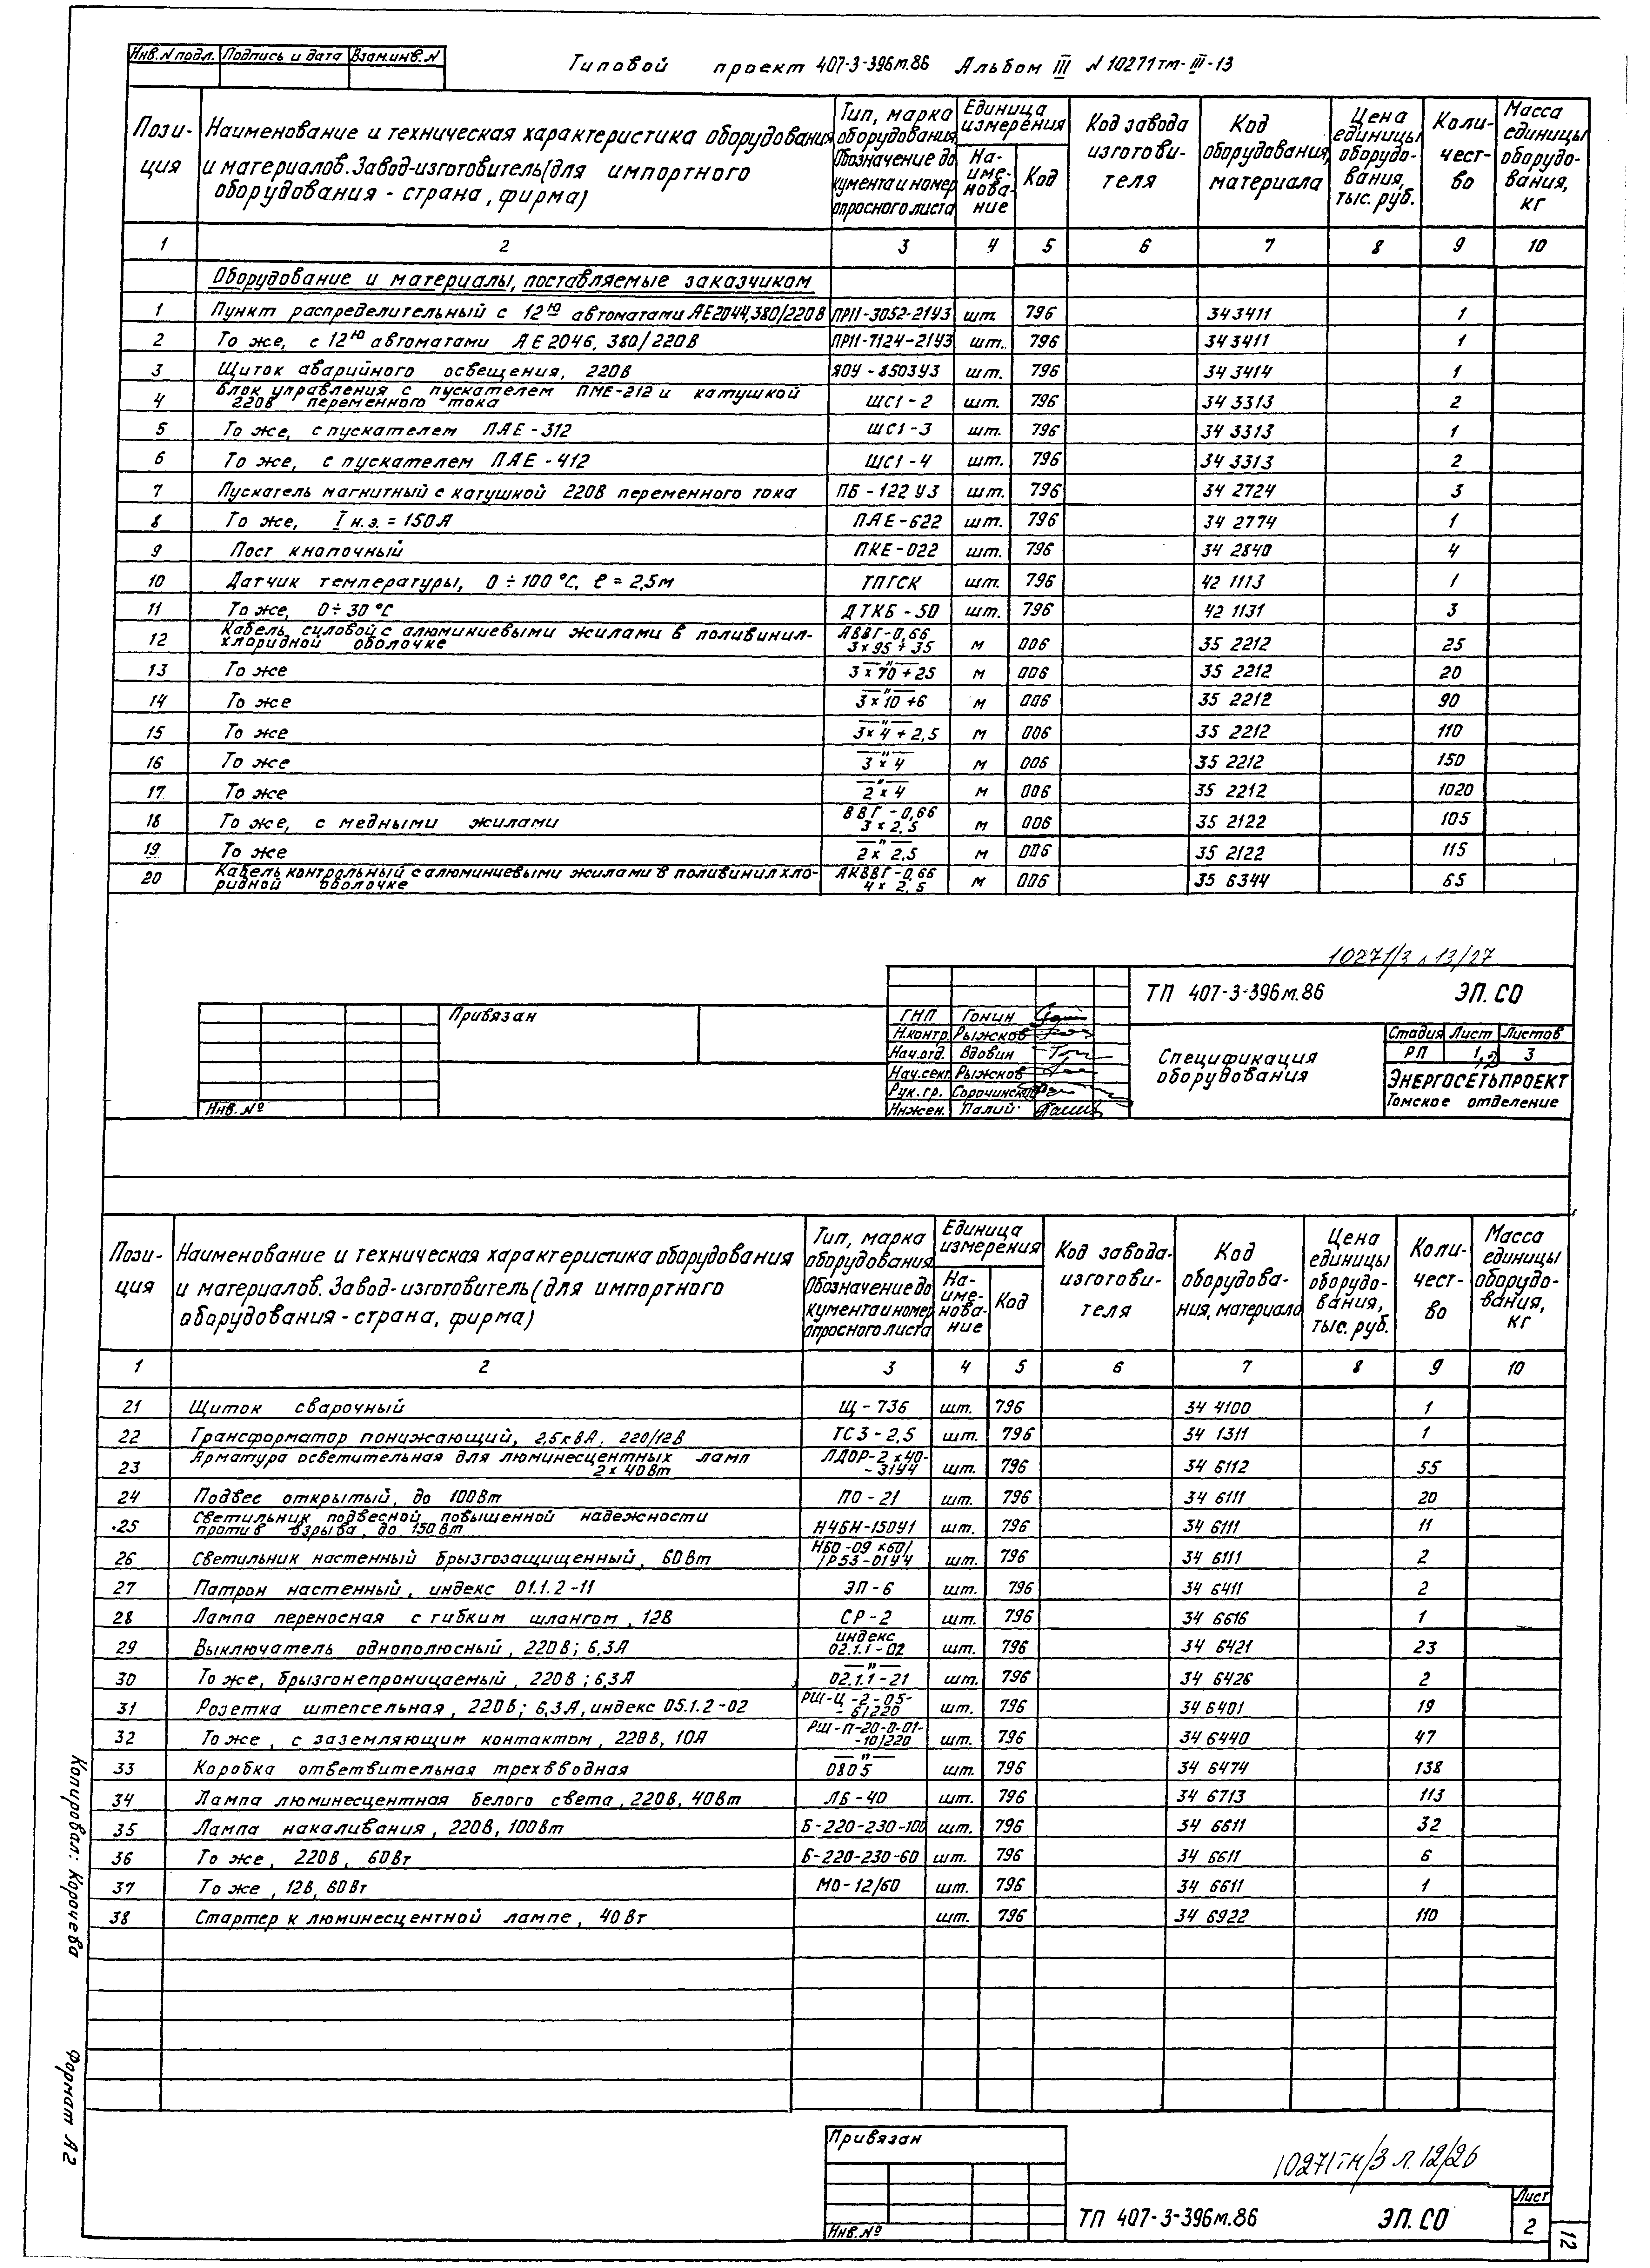 Инв.N подл. Подпись и дата Взам.инв.N
Типовой проект 407-3-396м.86 Альбом III N 10271тм-III-13
Пози-ция Наименование и техническая характеристика оборудования и материалов. Завод-изготовитель (для импортного оборудования - страна, фирма) Тип, марка оборудования. Обозначение документа и номер опросного листа Единица измерения Наименование Код Код завода изготовителя Код оборудования, материала Цена единицы оборудования, тыс. руб. Количество Масса единицы оборудования, кг
1 2 3 4 5 6 7 8 9 10
Оборудование и материалы, поставляемые заказчиком
1 Пункт распределительный с 12ю автоматами АЕ2044, 380/220В ПР11-3052-21У3 шт. 796 34 3411 1
2 То же, с 12ю автоматами АЕ2046, 380/220В ПР11-7124-21У3 шт. 796 34 3411 1
3 Щиток аварийного освещения, 220В ЯОУ-8503У3 шт. 796 34 3414 1
4 Блок управления с пускателем ПМЕ-212 и катушкой
220В переменного тока ЩС1-2 шт. 796 34 3313 2
5 То же, с пускателем ПАЕ-312 ЩС1-3 шт. 796 34 3313 1
6 То же, с пускателем ПАЕ-412 ЩС1-4 шт. 796 34 3313 2
7 Пускатель магнитный с катушкой 220В переменного тока ПБ-122 У3 шт. 796 34 2724 3
8 То же, I н.э. = 150А ПАЕ-622 шт. 796 34 2774 1
9 Пост кнопочный ПКЕ-022 шт. 796 34 2840 4
10 Датчик температуры, 0÷100°С, ℓ = 2,5м ТПГСК шт. 796 42 1113 1
11 То же, 0÷30°С ДТКБ-50 шт. 796 42 1131 3
12 Кабель силовой с алюминиевыми жилами в поливинил-
хлоридной оболочке АВВГ-0,66 3×95+35 м 006 35 2212 25
13 То же —"— 3×70+25 м 006 35 2212 20
14 То же —"— 3×10+6 м 006 35 2212 90
15 То же —"— 3×4+2,5 м 006 35 2212 110
16 То же —"— 3×4 м 006 35 2212 150
17 То же —"— 2×4 м 006 35 2212 1020
18 То же, с медными жилами ВВГ-0,66 3×2,5 м 006 35 2122 105
19 То же —"— 2×2,5 м 006 35 2122 115
20 Кабель контрольный с алюминиевыми жилами в поливинилхло-
ридной оболочке АКВВГ-0,66 4×2,5 м 006 35 6344 65
10271/3 л 13/27
ТП 407-3-396м.86 ЭП.СО
Привязан
Инв.№
ГНП Гонин
Н.контр. Рыжков
Нач.отд. Вдовин
Нач.сект. Рыжков
Рук.гр. Сорочинский
Инжен. Палий
Спецификация
оборудования
Стадия Лист Листов
РП 1,2 3
ЭНЕРГОСЕТЬПРОЕКТ
Томское отделение
Пози-ция Наименование и техническая характеристика оборудования и материалов. Завод-изготовитель (для импортного оборудования - страна, фирма) Тип, марка оборудования. Обозначение документа и номер опросного листа Единица измерения Наименование Код Код завода-изготовителя Код оборудования, материала Цена единицы оборудования, тыс. руб. Количество Масса единицы оборудования, кг
1 2 3 4 5 6 7 8 9 10
21 Щиток сварочный Щ-736 шт. 796 34 4100 1
22 Трансформатор понижающий, 2,5кВА, 220/12В ТСЗ-2,5 шт. 796 34 1311 1
23 Арматура осветительная для люминесцентных ламп
2×40Вт ЛДОР-2×40--31У4 шт. 796 34 6112 55
24 Подвес открытый, до 100Вт ПО-21 шт. 796 34 6111 20
25 Светильник подвесной повышенной надежности
против взрыва, до 150Вт Н4БН-150У1 шт. 796 34 6111 11
26 Светильник настенный брызгозащищенный, 60Вт НБО-09×60/ IР53-01У4 шт. 796 34 6111 2
27 Патрон настенный, индекс 01.1.2-11 ЭП-6 шт. 796 34 6411 2
28 Лампа переносная с гибким шлангом, 12В СР-2 шт. 796 34 6616 1
29 Выключатель однополюсный, 220В; 6,3А индекс 02.1.1-02 шт. 796 34 6421 23
30 То же, брызгонепроницаемый, 220В; 6,3А —"— 02.1.1-21 шт. 796 34 6426 2
31 Розетка штепсельная, 220В; 6,3А, индекс 05.1.2-02 РШ-Ц-2-05--6/220 шт. 796 34 6401 19
32 То же, с заземляющим контактом, 220В, 10А РШ-П-20-0-01--10/220 шт. 796 34 6440 47
33 Коробка ответвительная трехвводная —"— 0805 шт. 796 34 6474 138
34 Лампа люминесцентная белого света, 220В, 40Вт ЛБ-40 шт. 796 34 6713 113
35 Лампа накаливания, 220В, 100Вт Б-220-230-100 шт. 796 34 6611 32
36 То же, 220В, 60Вт Б-220-230-60 шт. 796 34 6611 6
37 То же, 12В, 60Вт МО-12/60 шт. 796 34 6611 1
38 Стартер к люминесцентной лампе, 40Вт шт. 796 34 6922 110
Привязан
Инв.№
10271тм/3 л.12/26
ТП 407-3-396м.86 ЭП.СО
Лист
2
12
Копировал: Корочева
Формат А2